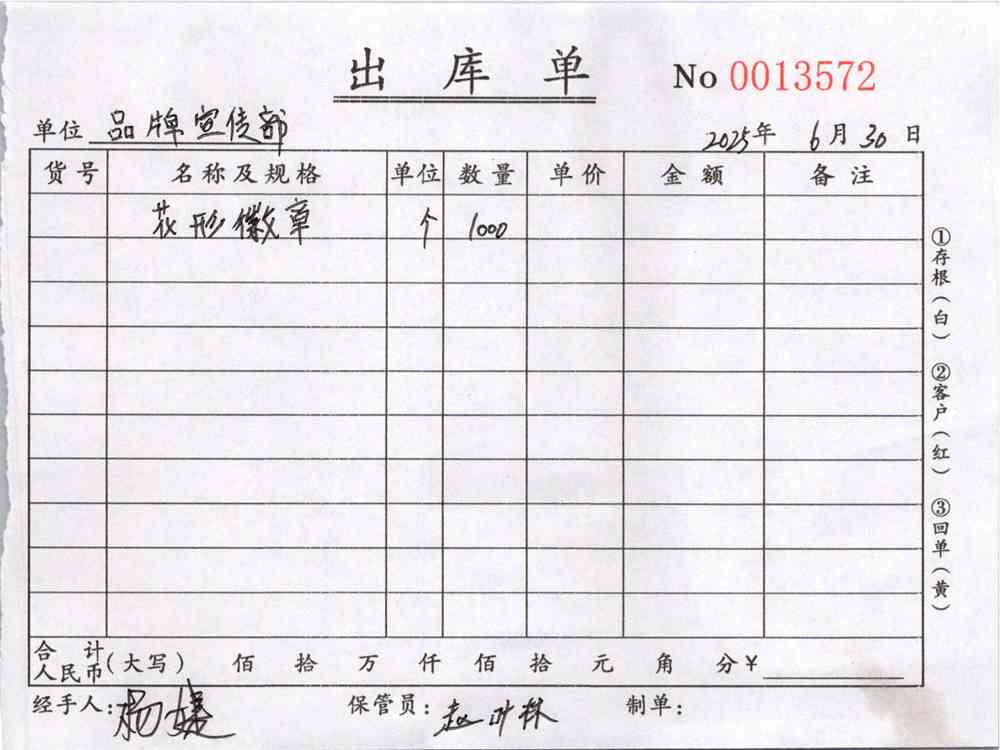 出 库 单
No 0013572
单位 品牌宣传部
2025年 6月30日
货号 名称及规格 单位 数量 单价 金额 备注
花形徽章 个 1000
①存根（白） ②客户（红） ③回单（黄）
合计
人民币(大写) 佰 拾 万 仟 佰 拾 元 角 分¥
经手人: 杨 保管员: 赵叶林 制单: